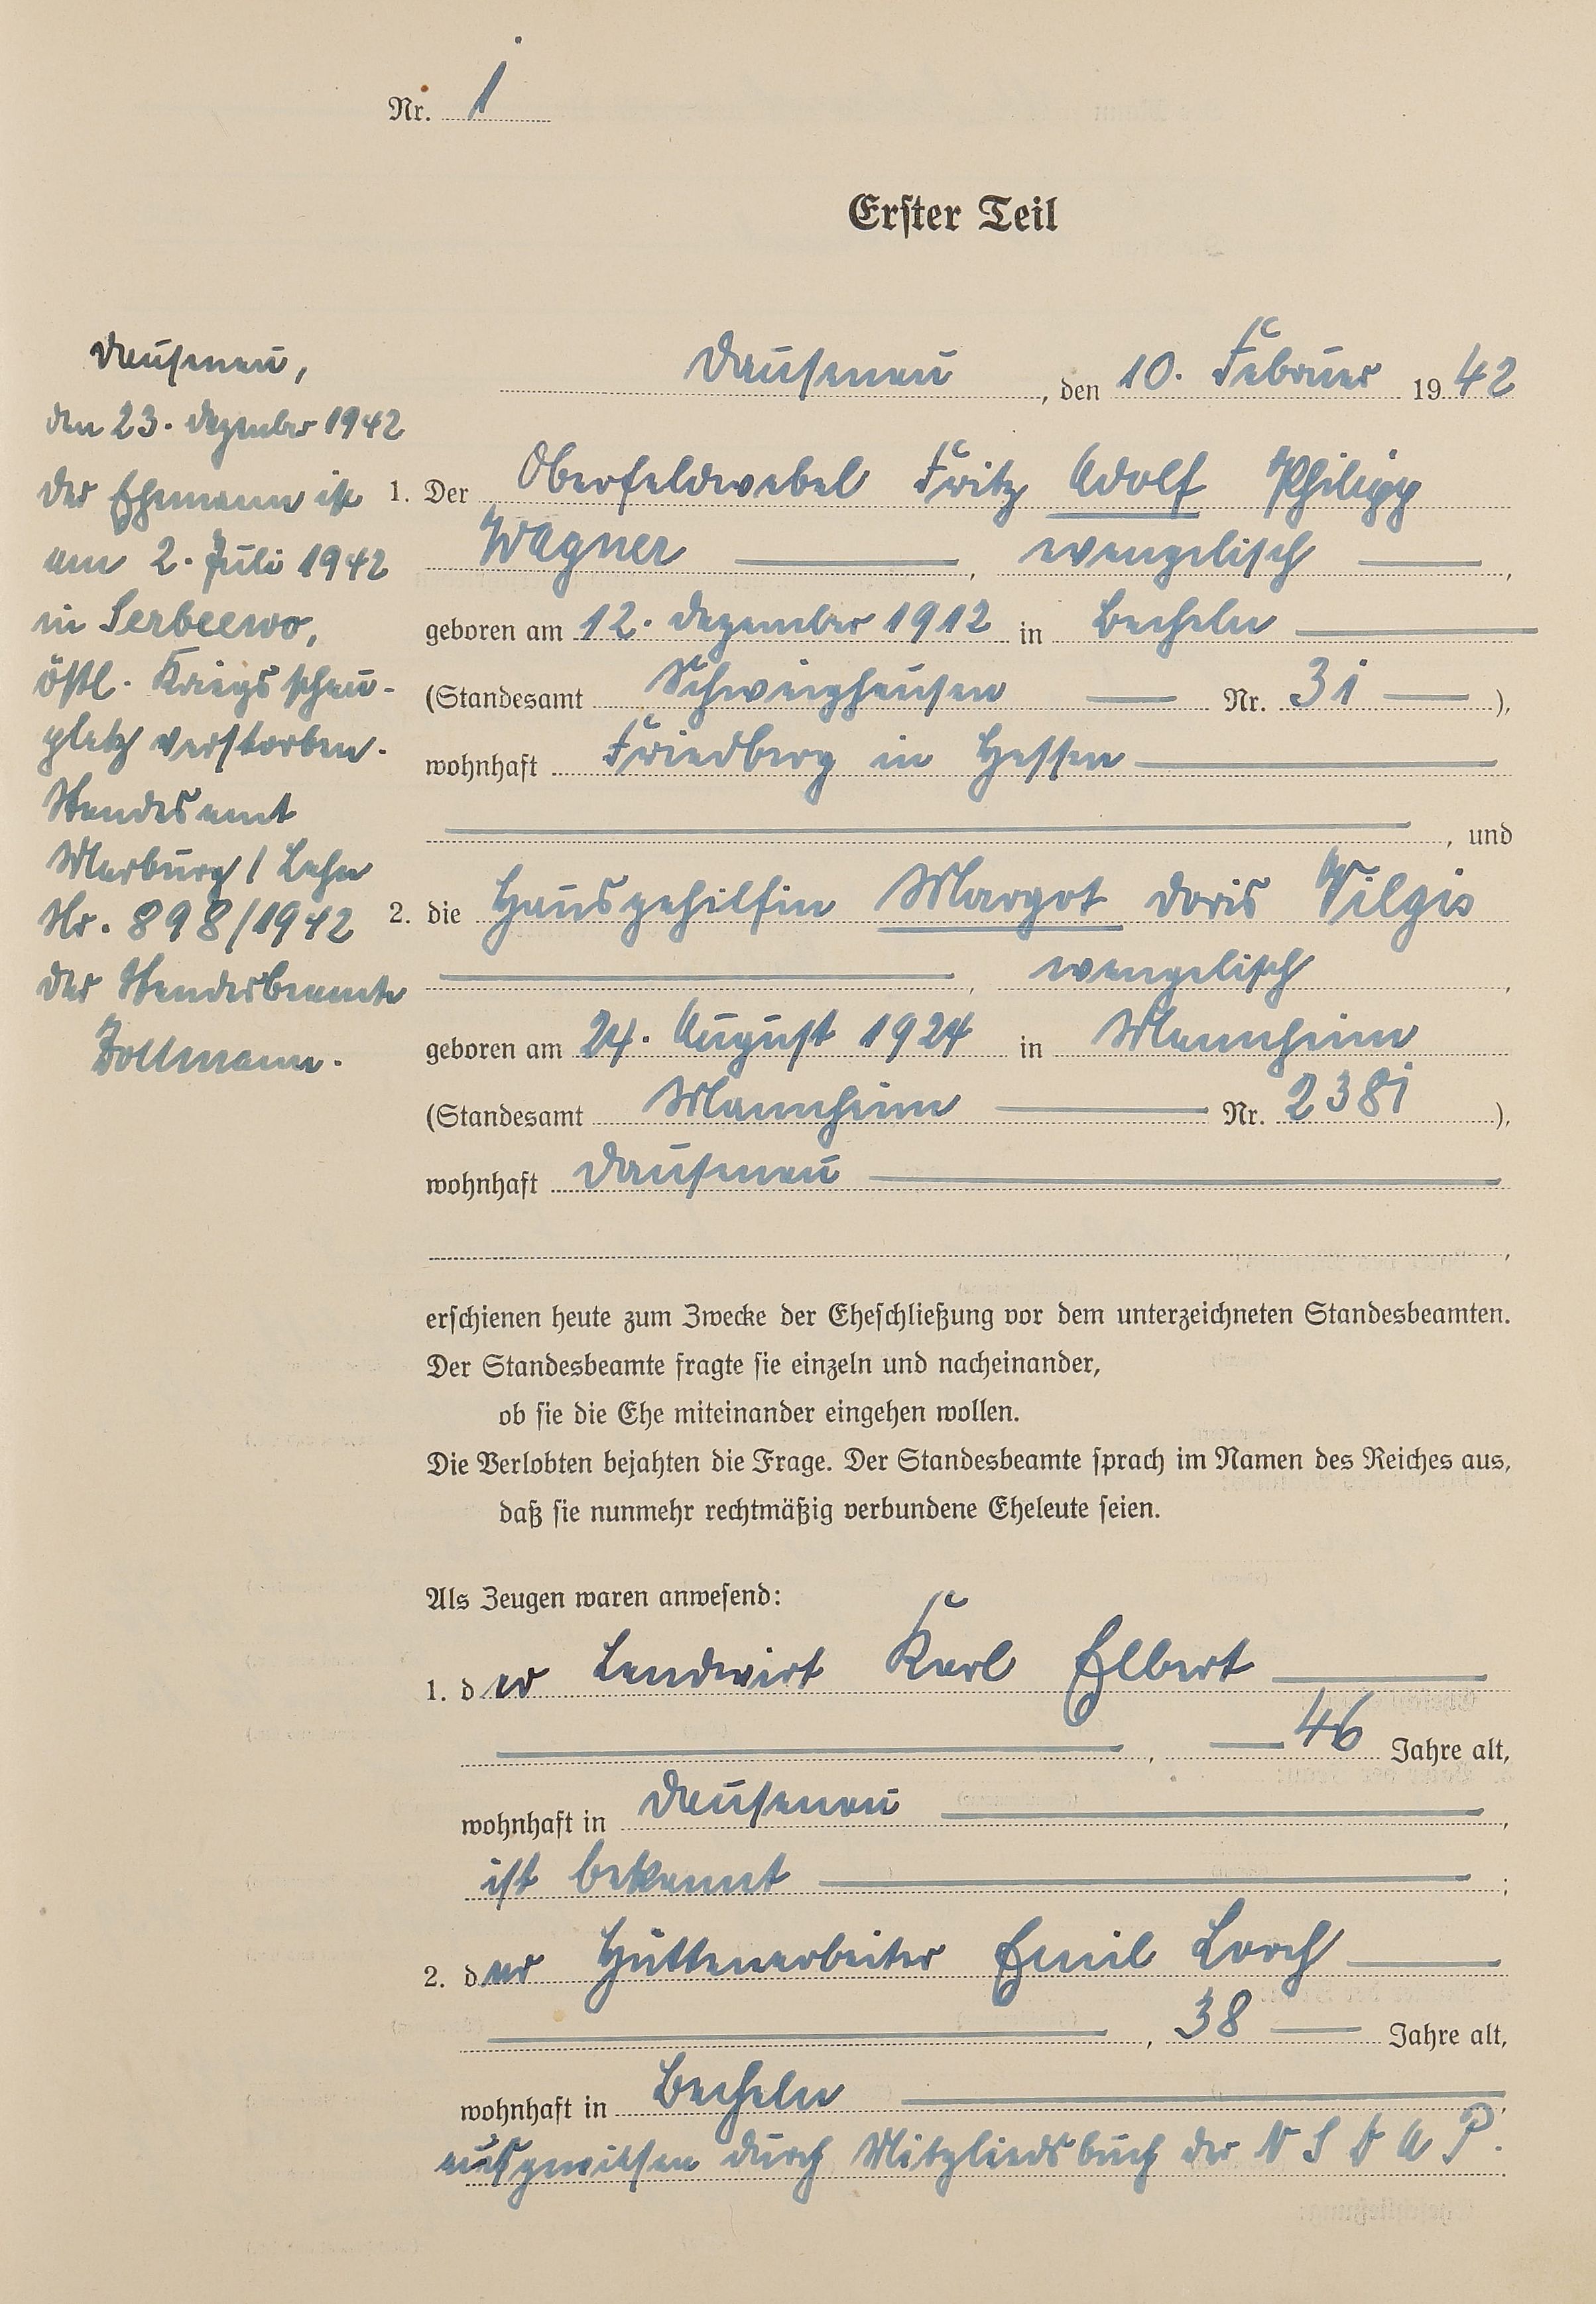 Nr. 1
Erster Teil
Dausenau, den 10. Februar 1942
1. Der Oberfeldwebel Fritz Adolf Philipp
Wagner, evangelisch,
geboren am 12. Dezember 1912 in Becheln
(Standesamt Schweighausen Nr. 31),
wohnhaft Friedberg in Hessen
, und
2. die Hausgehilfin Margot Doris Vilgis
, evangelisch,
geboren am 24. August 1924 in Mannheim
(Standesamt Mannheim Nr. 2381),
wohnhaft Dausenau
,
erschienen heute zum Zwecke der Eheschließung vor dem unterzeichneten Standesbeamten.
Der Standesbeamte fragte sie einzeln und nacheinander,
ob sie die Ehe miteinander eingehen wollen.
Die Verlobten bejahten die Frage. Der Standesbeamte sprach im Namen des Reiches aus,
daß sie nunmehr rechtmäßig verbundene Eheleute seien.
Als Zeugen waren anwesend:
1. der Landwirt Karl Elbert
, 46 Jahre alt,
wohnhaft in Dausenau,
ist bekannt;
2. der Hüttenarbeiter Emil Lorch
, 38 Jahre alt,
wohnhaft in Becheln,
ausgewiesen durch Mitgliedsbuch der N S D A P.
Dausenau,
den 23. Dezember 1942
Der Ehemann ist
am 2. Juli 1942
in Serbeewo,
östl. Kriegsschau-
platz verstorben.
Standesamt
Marburg / Lahn
Nr. 898/1942
Der Standesbeamte
Zollmann.